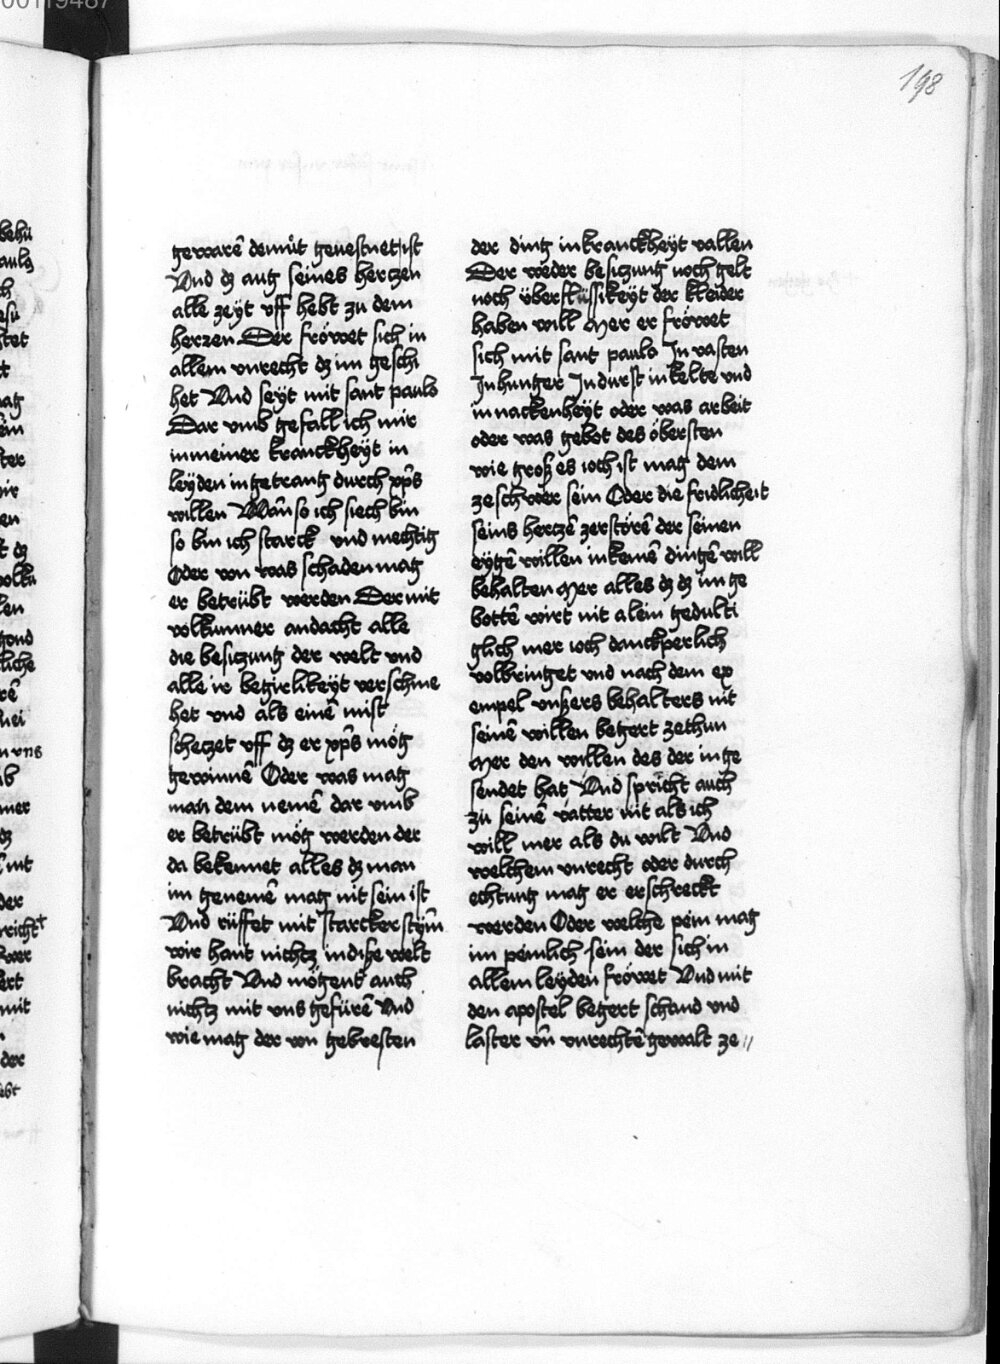 198
gewarē demüt geuestnet ist
Vnd dz aug seines hertzen
alle zeÿt vff hebt zu dem
herzen Der fröwet sich in
allem vnrecht dz im geschi
het Vnd seÿt mit sant paulo
Dar vmb gefall ich mir
in meiner kranckheÿt in
leÿden in getrang durch xp̄s
willen Wān so ich siech bin
so bin ich starck vnd mechtig
Oder von was schaden mag
er betrübt werden Der mit
volkumner andacht alle
die besiczung der welt vnd
alle ir begirlikeÿt verschme
het vnd als einē mist
scheczet vff dz er xp̄s mög
gewinnē Oder was mag
man dem nemē dar vmb
er betrübt mög werden der
da bekennet alles dz man
im genemē mag nit sein ist
Vnd rüffet mit starcker stÿm̄
wir hant nichtz in diße welt
bracht Vnd mögent auch
nichtz mit vns gefürē Vnd
wie mag der von gebresten
der ding in kranckheÿt vallen
Der weder besiczung noch gelt
noch überflüssikeÿt der kleider
haben will Mer er fröwet
sich mit sant paulo In vasten
In hunger In durst in kelte vnd
in nackenheÿt oder was arbeit
oder was gebot des öbersten
wie groß es ioch ist mag dem
ze schwer sein Oder die fridlicheit
seins hertzē zerstörē der seinen
eÿgē willen in keinē dingē will
behalten Mer alles dz dz im ge
bottē wirt nit alein gedulti
glich mer ioch danckperlich
volbringet vnd nach dem ex
empel vnßers behalters nit
seinē willen begert zethun
Mer den willen des der in ge
sendet hat Vnd spricht auch
zü seinē vatter nit als ich
will mer als du wilt Vnd
welchem vnrecht oder durch
echtung mag er erschreckt
werden Oder welche pein mag
im peinlich sein der sich in
allem leÿden fröwet Vnd mit
den apostel begert schand vnd
laster vn̄ vnrechtē gewalt ze //